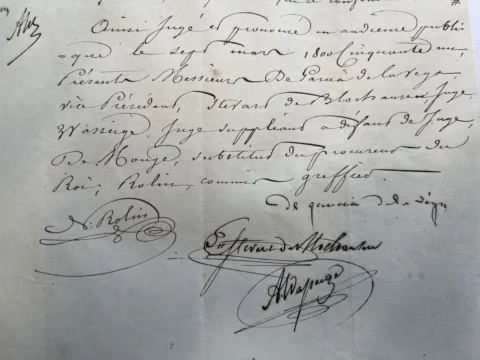 Ainsi Jugé et prononcé en audience publi
=que le sept mars 1800 Cinquante un,
Présents Messieurs De Garcia de la Vega,
vice Président, Stevart de Juge,
Wasseige, Juge suppléant à défaut de Juge,
De Monge, substitut du procureur du
Roi; Rolin, commis greffier.
de garcia de la vega
N. Rolin